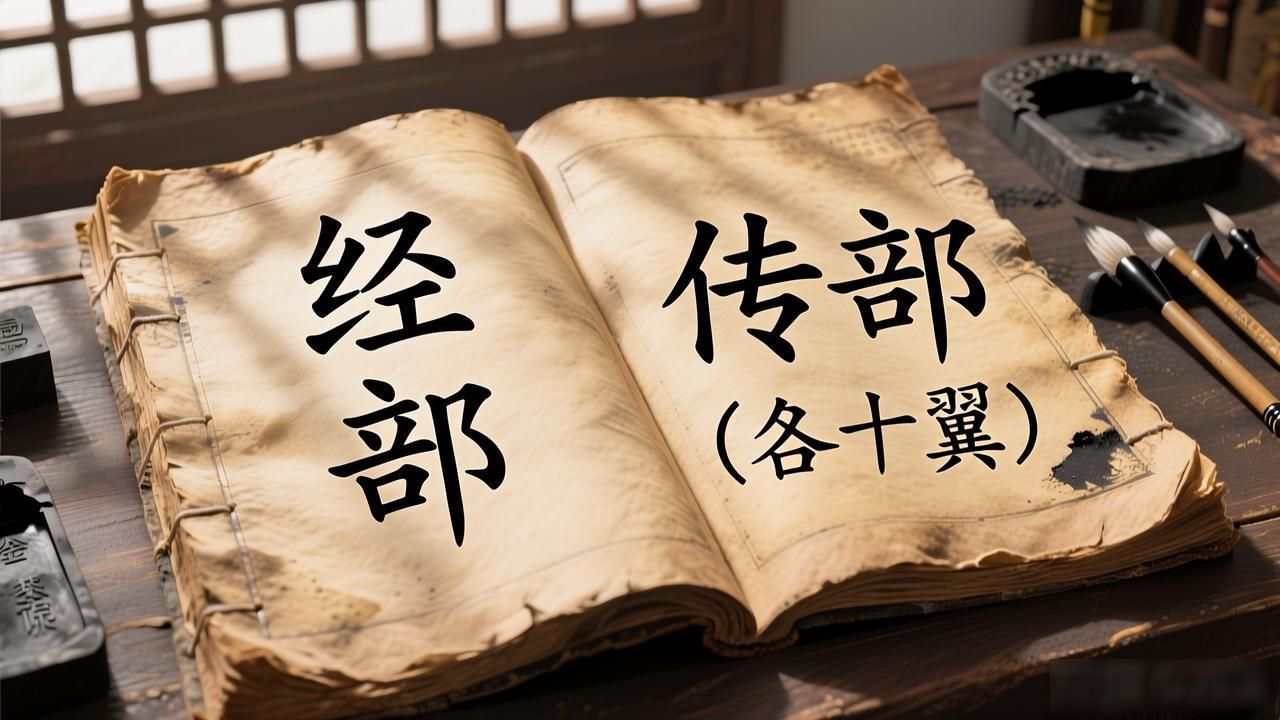 经
部
传部
（各十翼）